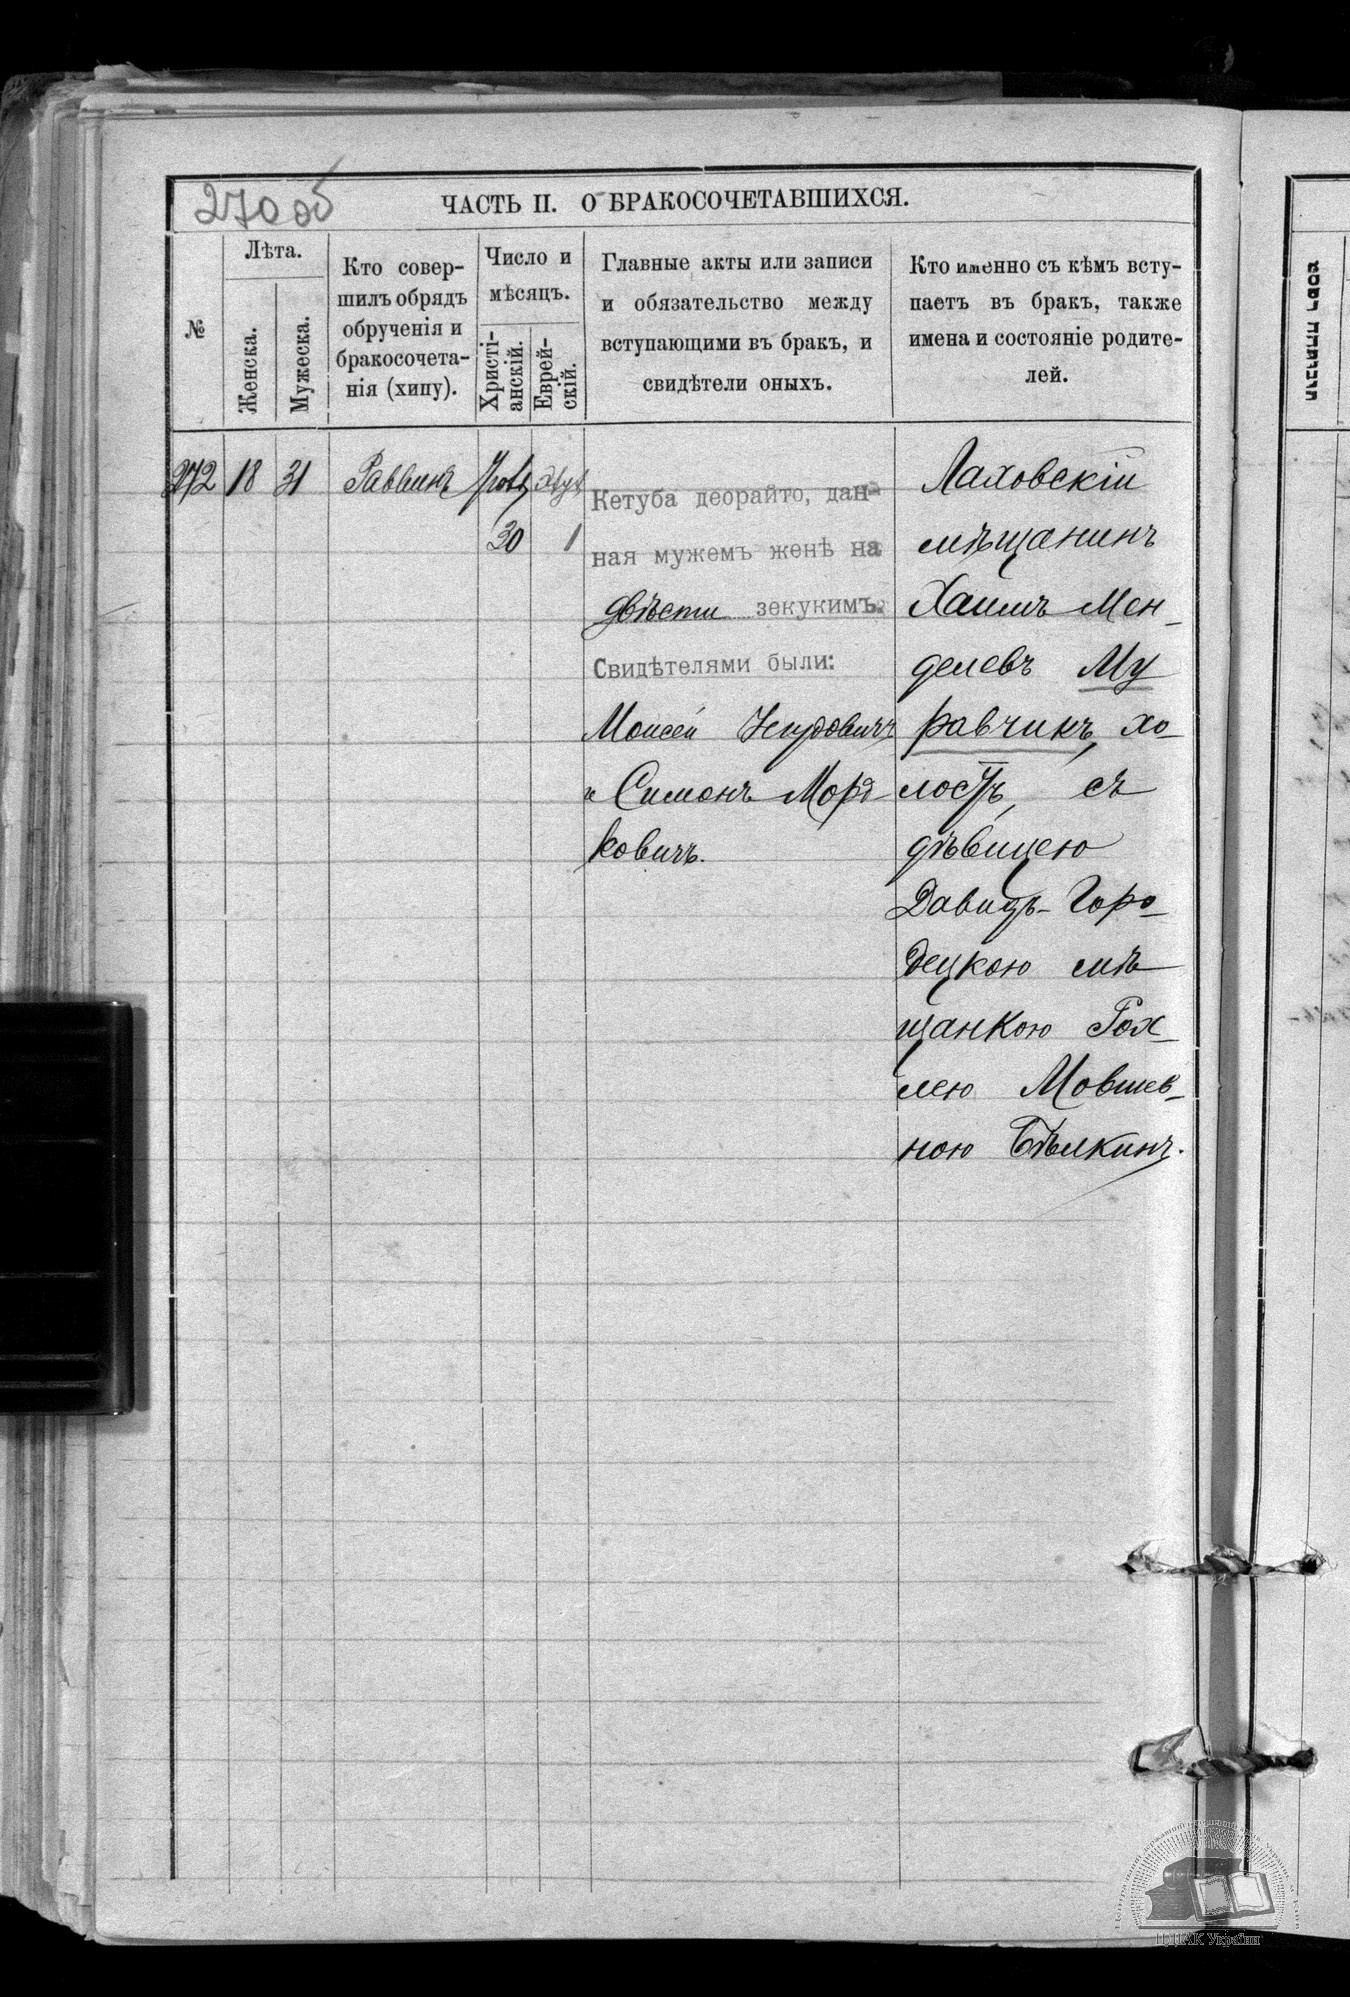 270 об
ЧАСТЬ II. О БРАКОСОЧЕТАВШИХСЯ.
№
Лѣта.
Женска.
Мужеска.
Кто совер-
шилъ обрядъ
обрученія и
бракосочета-
нія (хипу).
Число и
мѣсяцъ.
Христі-
анскій.
Еврей-
скій.
Главные акты или записи
и обязательство между
вступающими въ бракъ, и
свидѣтели оныхъ.
Кто именно съ кѣмъ всту-
паетъ въ бракъ, также
имена и состояніе родите-
лей.
272
18
31
Раввинъ
30
1
Кетуба деорайто, дан-
ная мужемъ женѣ на
двѣсти зекукимъ.
Свидѣтелями были:
Моисей
и Симонъ Мор
ковичъ.
Лаховскій
мѣщанинъ
Хаимъ Мен-
делевъ Му
равчикъ, хо-
лостъ, съ
дѣвицею
Давидъ-Горо-
децкою мѣ
щанкою Рох-
лею Мовшев-
ною Бѣлкинъ.
ЦДІАК України